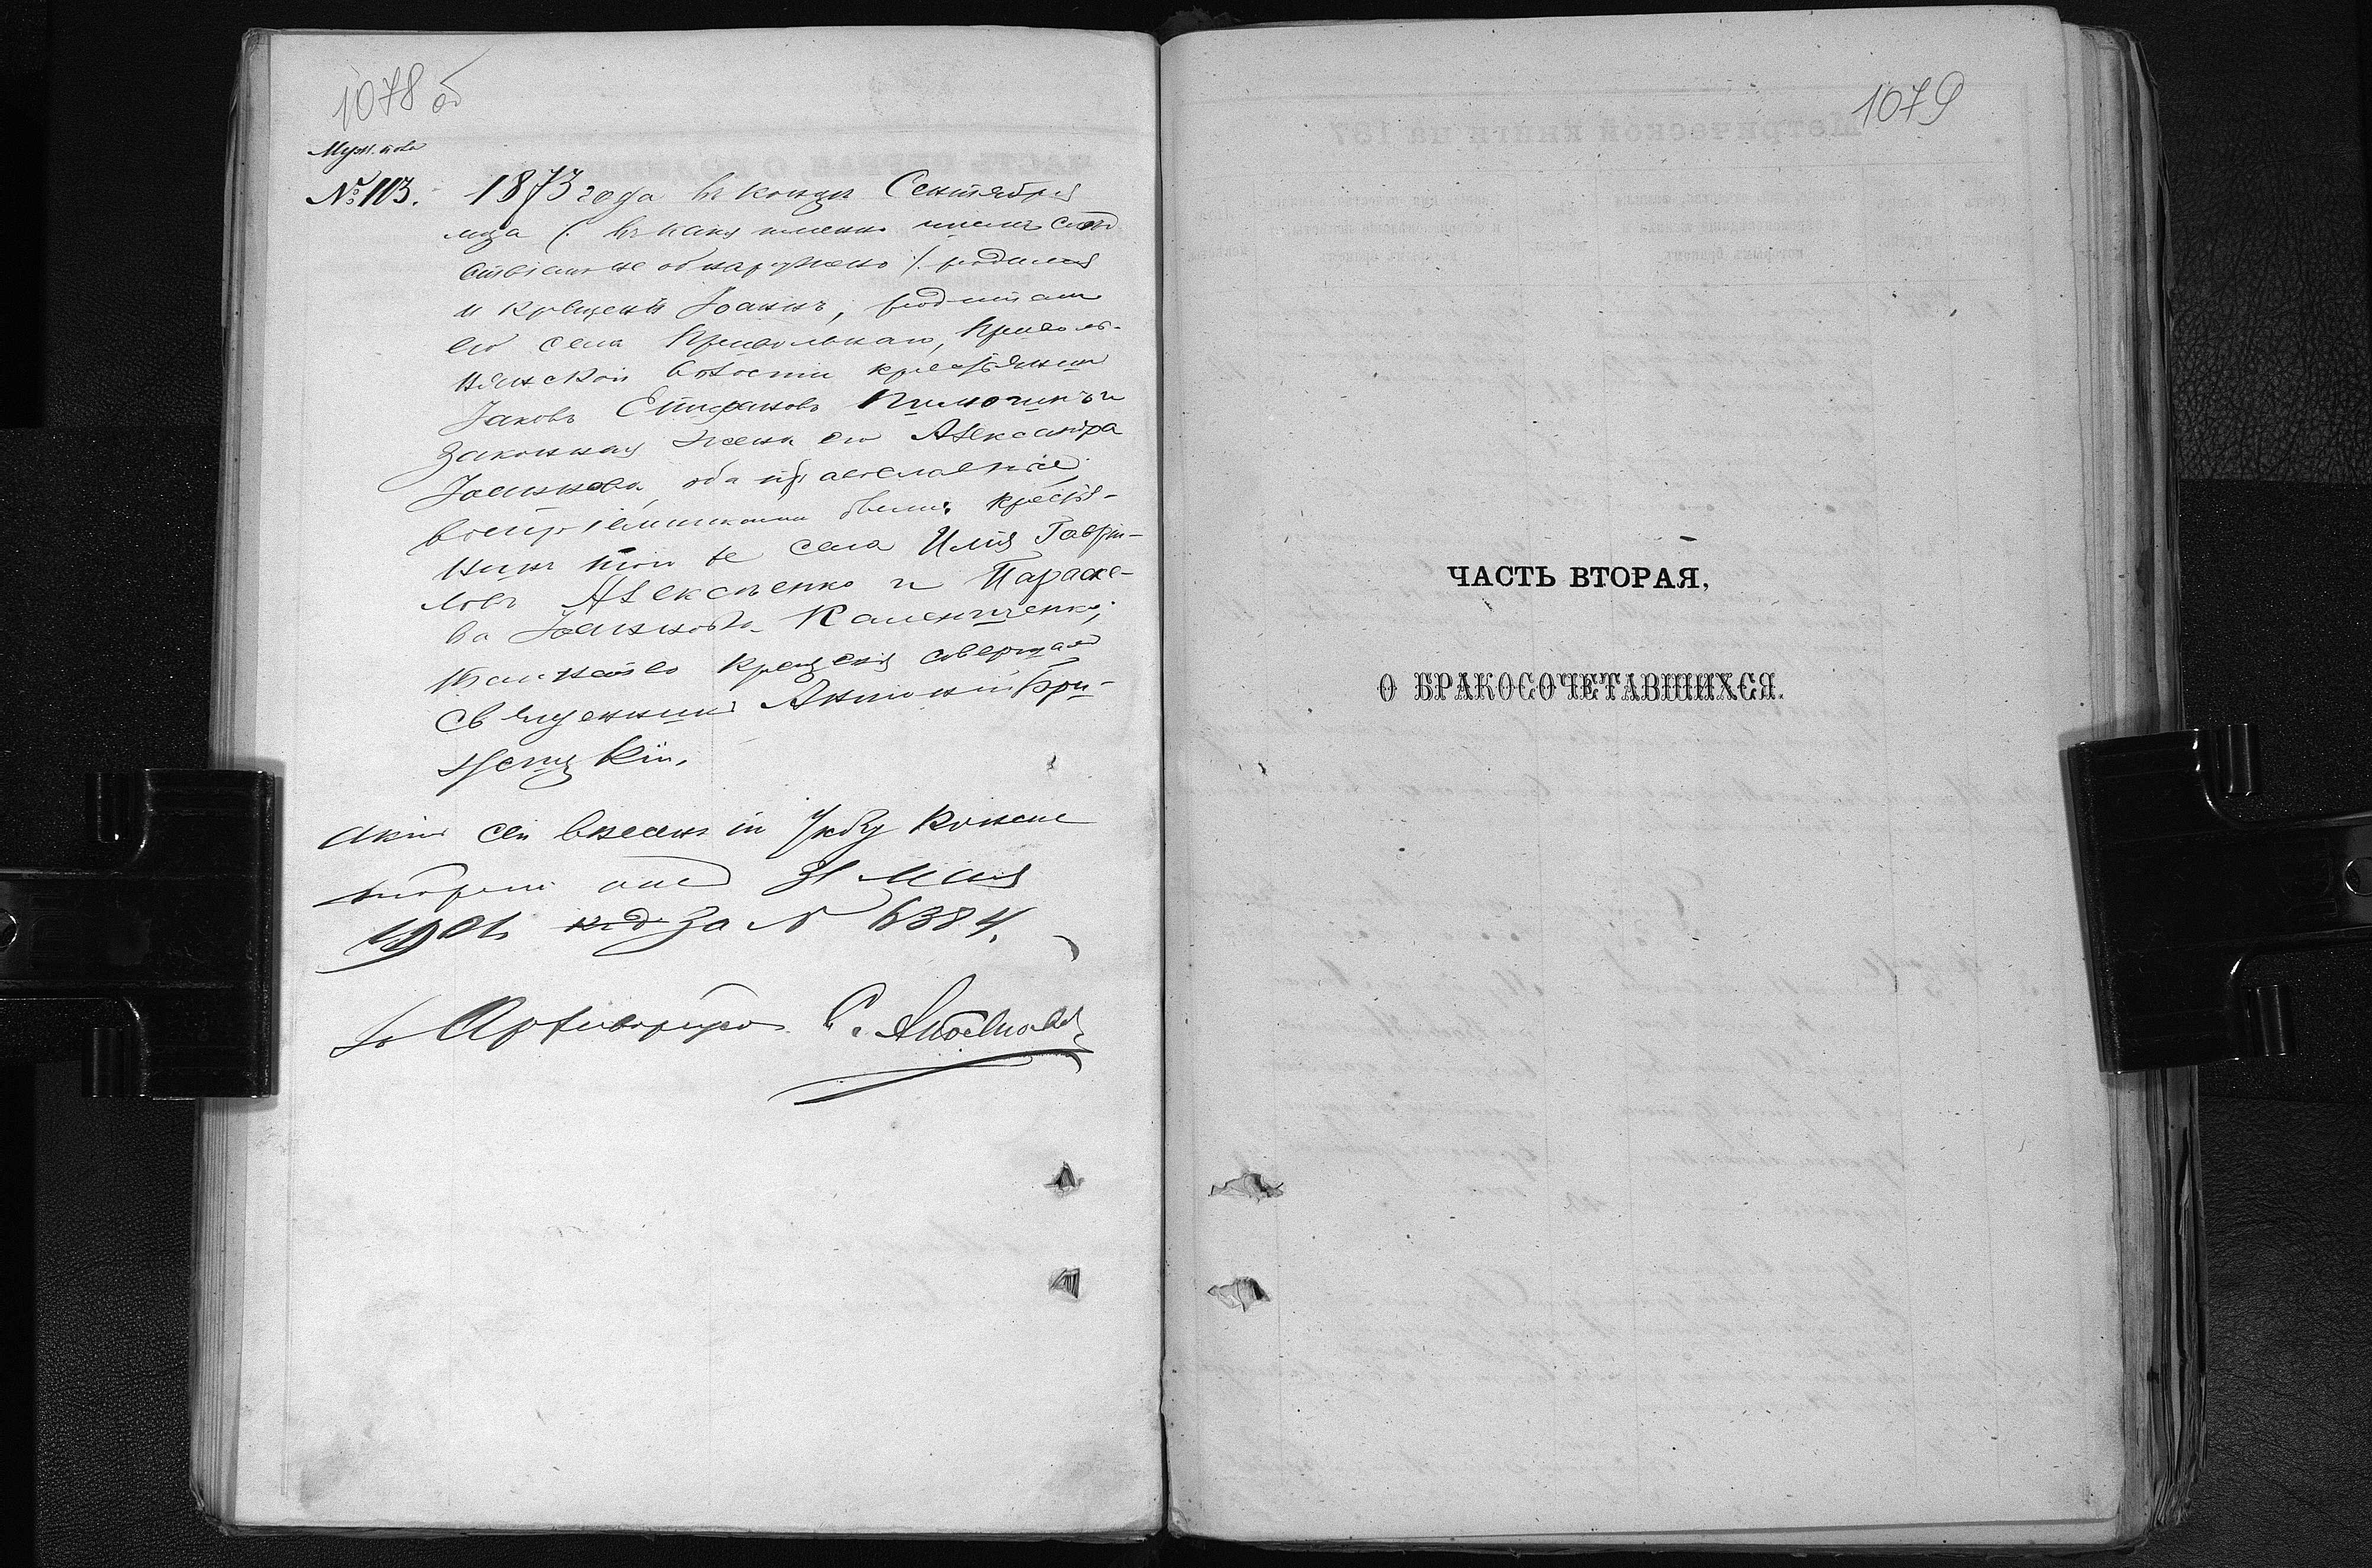 1078 об
Муж. пола
№ 113. 1873 года въ конце Сентября
мца (: въ какомъ именно числѣ слѣд
ствіемъ не обнаружено :) родился
и крещенъ Іоаннъ, родители
его села Привольнаго, Приволь-
нянской волости крестьянинъ
Іаковъ Епифановъ и
законная жена его Александра
Іоаннова, оба православные
воспріемниками были: крестья-
нинъ того же села Илія Гаврі-
ловъ Алексѣенко и Параске-
ва Іоаннова Калениченко;
таинство крещенія совершалъ
Священникъ Антоній Бри-
жецкій.
Актъ сей внесенъ по Указу Конси
сторіи отъ 31 Мая
1901 за № 6384.
С.
1079
ЧАСТЬ ВТОРАЯ,
О БРАКОСОЧЕТАВШИХСЯ.